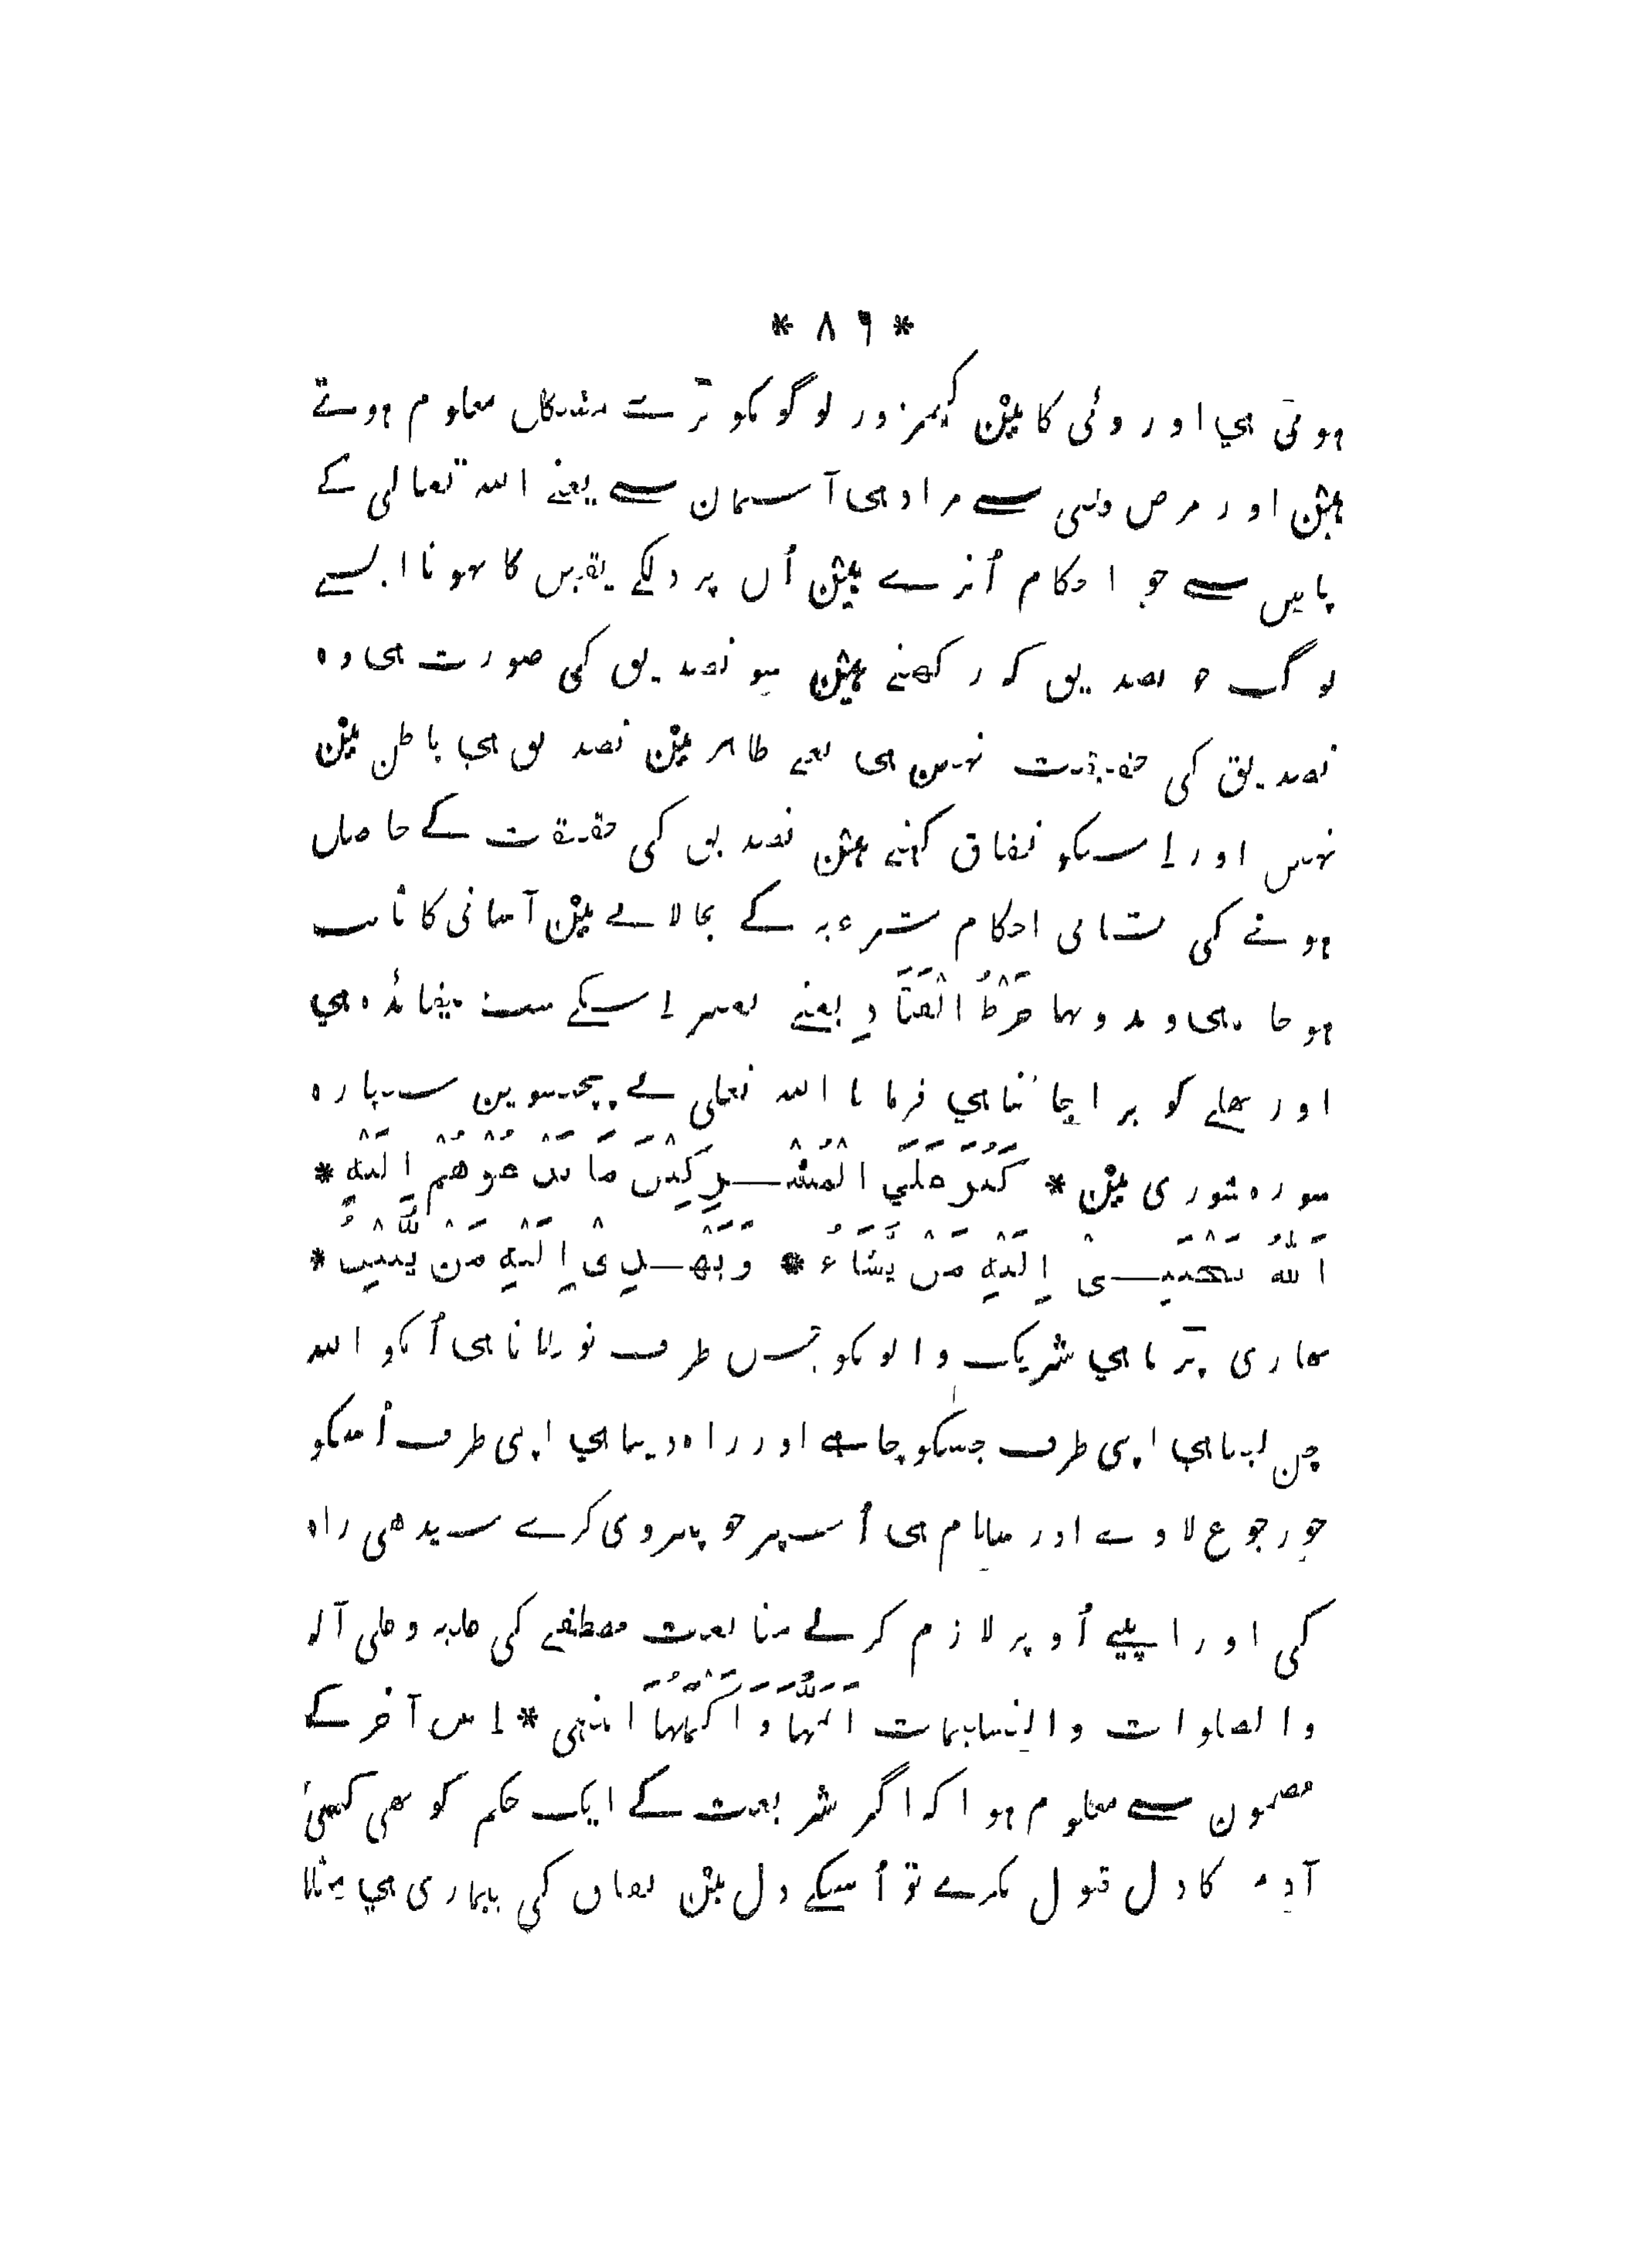 * ٨٦ *
ہوتی ہی اور وئی کامین کمزور لوگوکو بڑے مشکل معلوم ہوتے
ہین اور مرض سے مراد ہی آسمان سے یعنے اللہ تعالی کے
پاس سے جو احکام اُترے ہین اُن پر دلکے یقین کا نہونا ایسے
لوگ جو تصدیق کہ رکھتے ہین سو تصدیق کی صورت ہی وہ
تصدیق کی حقیقت نہین ہی یعنے ظاہر مین تصدیق ہی باطن مین
نہین اور اِسکو نفاق کہتے ہین تصدیق کی حقیقت کے حاصل
ہونے کی نشانی احکام شرعیہ کے بجا لانے مین آسانی کا ثابت
ہو جانا ہی و بدونہا خَرْطُ الْقَتَادِ یعنے بغیر اِسکے سب بیفائدہ ہی
اور بھلے کو برا جانتا ہی فرمایا اللہ تعلی نے پچیسوین سیپارہ
سورہ شوری مین * كَبُرَ عَلَي الْمُشْرِكِيْنَ مَا تَدْعُوْهُمْ اِلَيْهِ *
اَللّٰهُ يَجْتَبِىْ اِلَيْهِ مَنْ يَّشَاءُ * وَيَهْدِىْ اِلَيْهِ مَنْ يُّنِيْبُ *
بھاری پڑتا ہی شریک والوکو جس طرف تو بلاتا ہی اُنکو اللہ
چن لیتا ہی اپنی طرف جسکو چاہے اور راہ دیتا ہی اپنی طرف اُسکو
جو رجوع لاوے اور سلام ہی اُسپر جو پیروی کرے سیدھی راہ
کی اور اپنے اُوپر لازم کرلے متابعت مصطفے کی علیہ وعلی آلہ
والصلوات والتسلیمات اَتَمُّهَا وَاَكْمَلُهَا انتہی * اِس آخر کے
مضمون سے معلوم ہوا کہ اگر شریعت کے ایک حکم کو بھی کسی
آدمی کا دل قبول نکرے تو اُسکے دل مین نفاق کی بیماری ہی مثلا